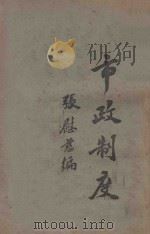 市政制度
張慰慈編